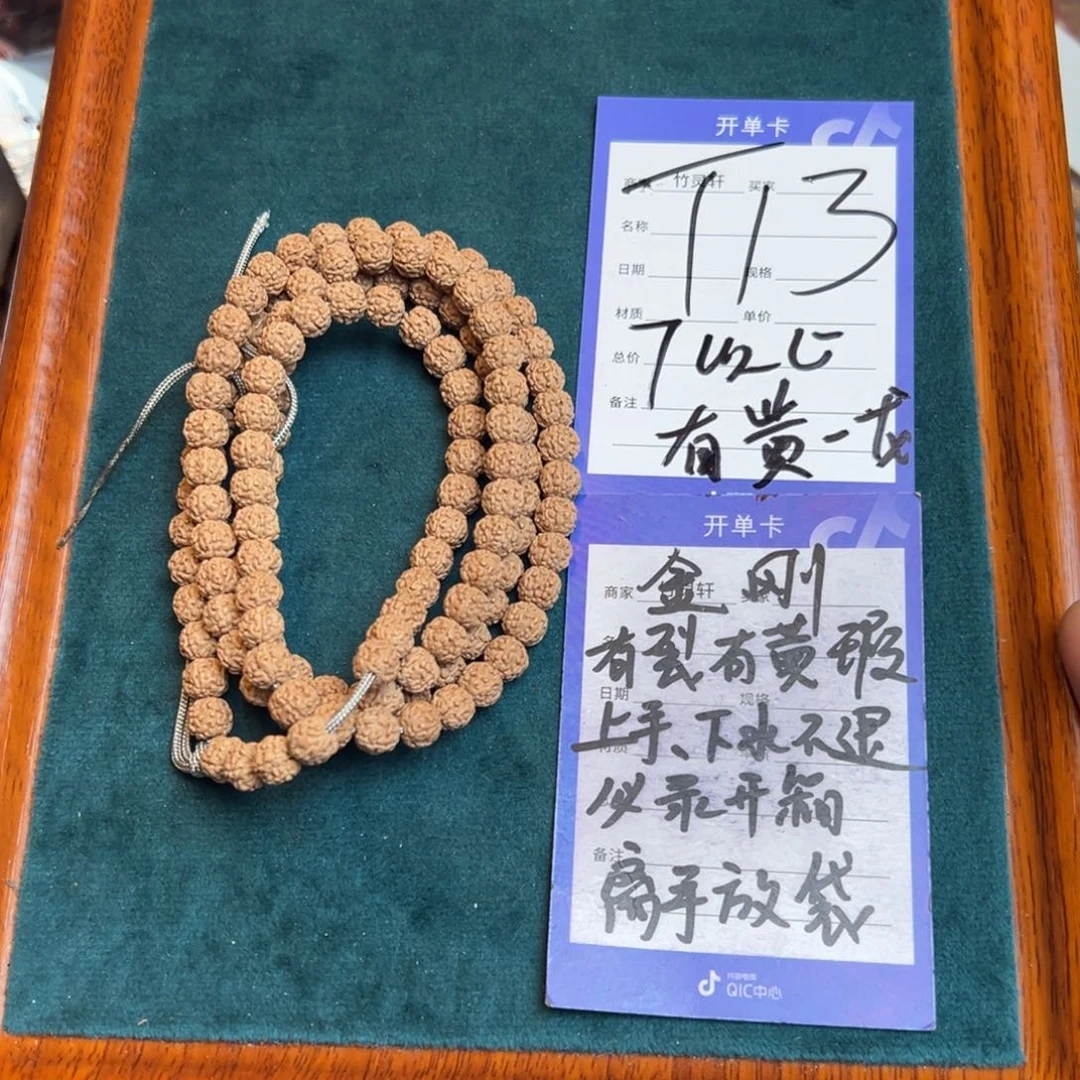 开单卡
商家 竹灵轩 买家
113
名称
日期 规格
材质 单价
总价
备注
有黄一
开单卡
商家 轩
金刚
有裂有黄瑕
日期 规格
上手、下水不退
材质
必录开箱
备注
离手放袋
抖音电商
QIC中心